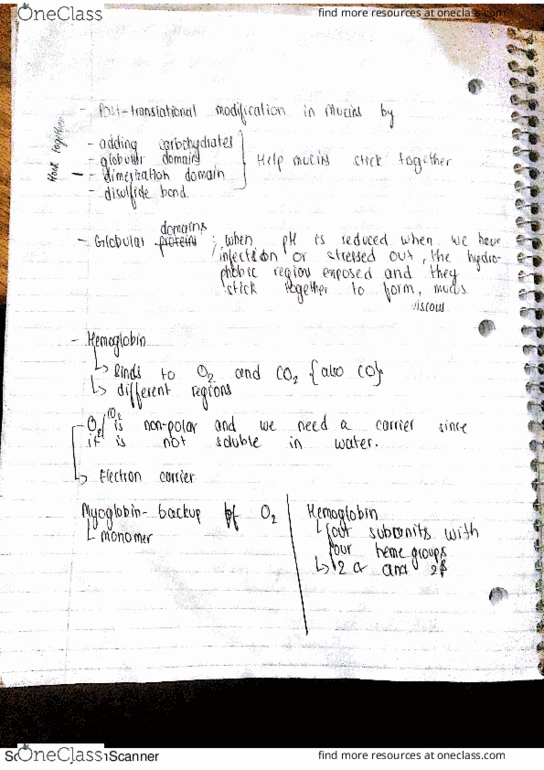 OneClass
find more resources at oneclass.com
- Post-translational modification in mucins by
- adding carbohydrates
- globular domains
- dimerization domain
- disulfide bond
Help mucins stick together
Hook together
- Globular proteins domains ; when pH is reduced when we have
infection or stressed out, the hydro-
phobic region exposed and they
stick together to form, mucus
viscous
- Hemoglobin
↳ Binds to O2 and CO2 {also CO}
↳ different regions
O2/CO2 is non-polar and we need a carrier since
it is not soluble in water.
↳ Electron carrier
Myoglobin - backup of O2
└ monomer
Hemoglobin
└ four subunits with
four heme groups
↳ 2 α and 2β
OneClass
Scanner
find more resources at oneclass.com